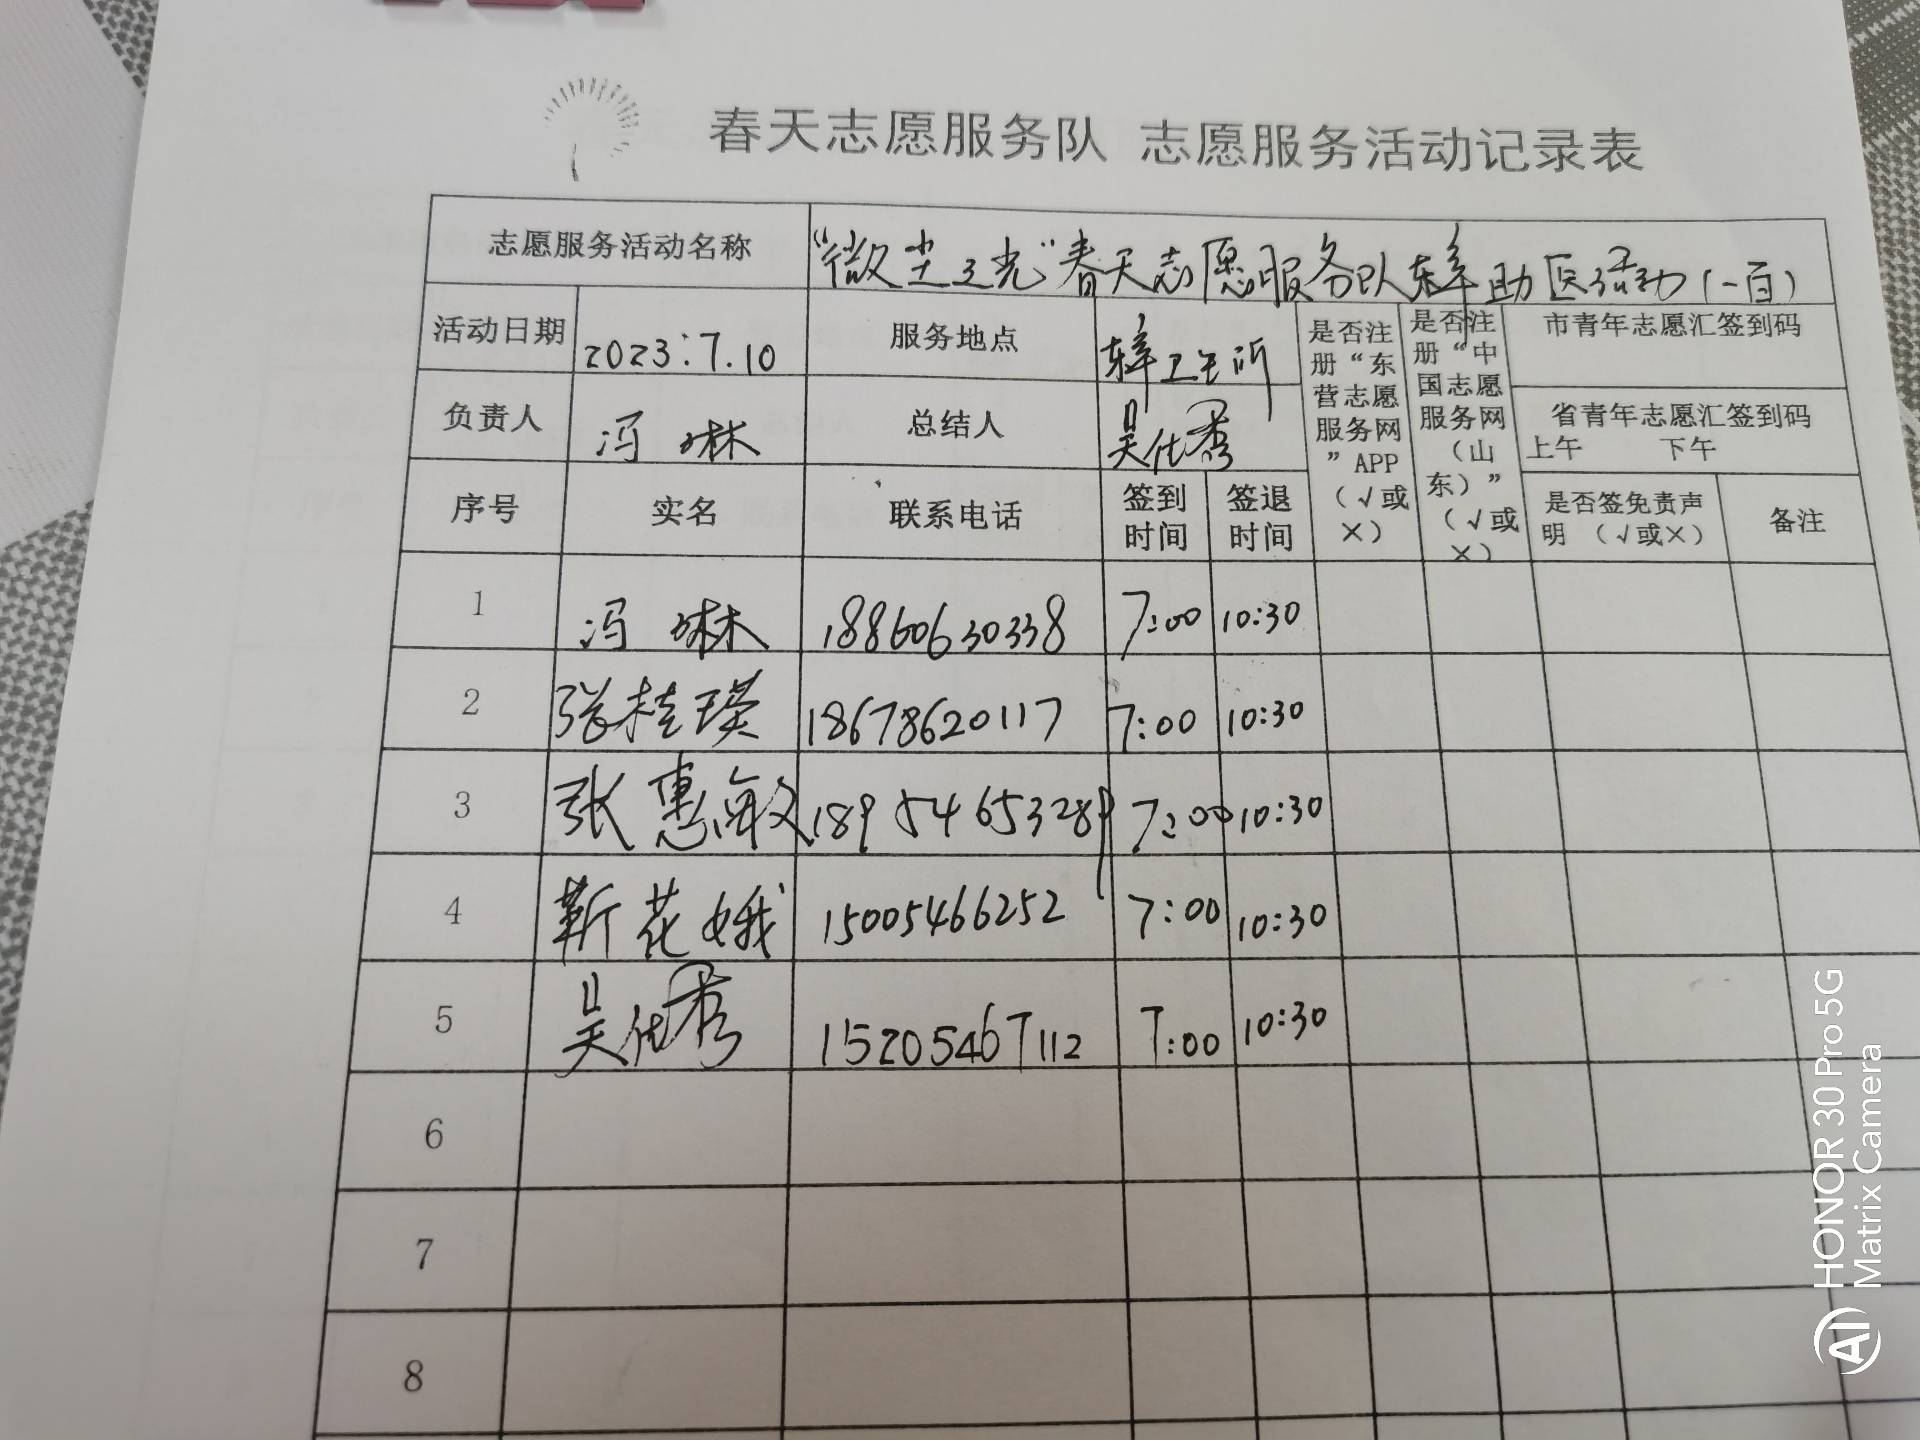 春天志愿服务队 志愿服务活动记录表
志愿服务活动名称 “微尘之光”春天志愿服务队辛助医活动(一百)
活动日期 2023:7.10 服务地点 卫生所
负责人 冯琳 总结人 吴仕秀
是否注册“东营志愿服务网”APP（√或×）
是否注册“中国志愿服务网（山东）”（√或×）
市青年志愿汇签到码
省青年志愿汇签到码
上午 下午
序号 实名 联系电话 签到时间 签退时间 是否签免责声明（√或×） 备注
1 冯琳 18860630338 7:00 10:30
2 张桂瑛 18678620117 7:00 10:30
3 张惠敏 18954653289 7:00 10:30
4 靳花娥 15005466252 7:00 10:30
5 吴仕秀 15205467112 7:00 10:30
6
7
8
HONOR 30 Pro 5G
Matrix Camera
AI